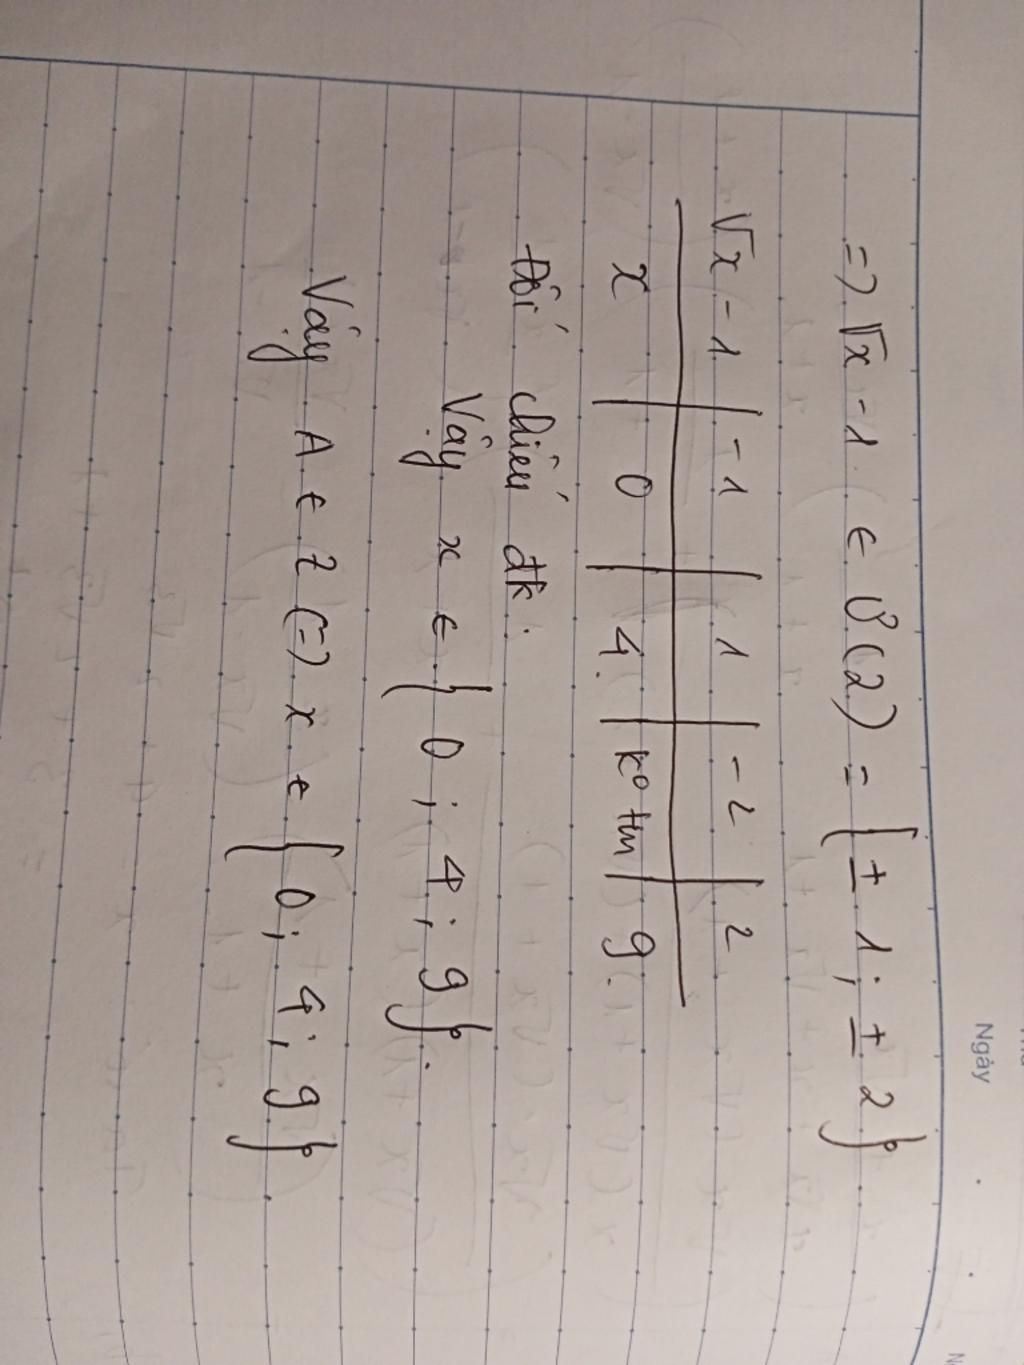 Ngày
=> √x - 1 ∈ Ư(2) = { ± 1; ± 2 }
√x - 1 | - 1 | 1 | - 2 | 2
x | 0 | 4. | k° tm | 9.
Đối chiếu đk.
Vậy x ∈ { 0 ; 4 ; 9 }.
Vậy A ∈ Z (=) x ∈ { 0 ; 4 ; 9 }